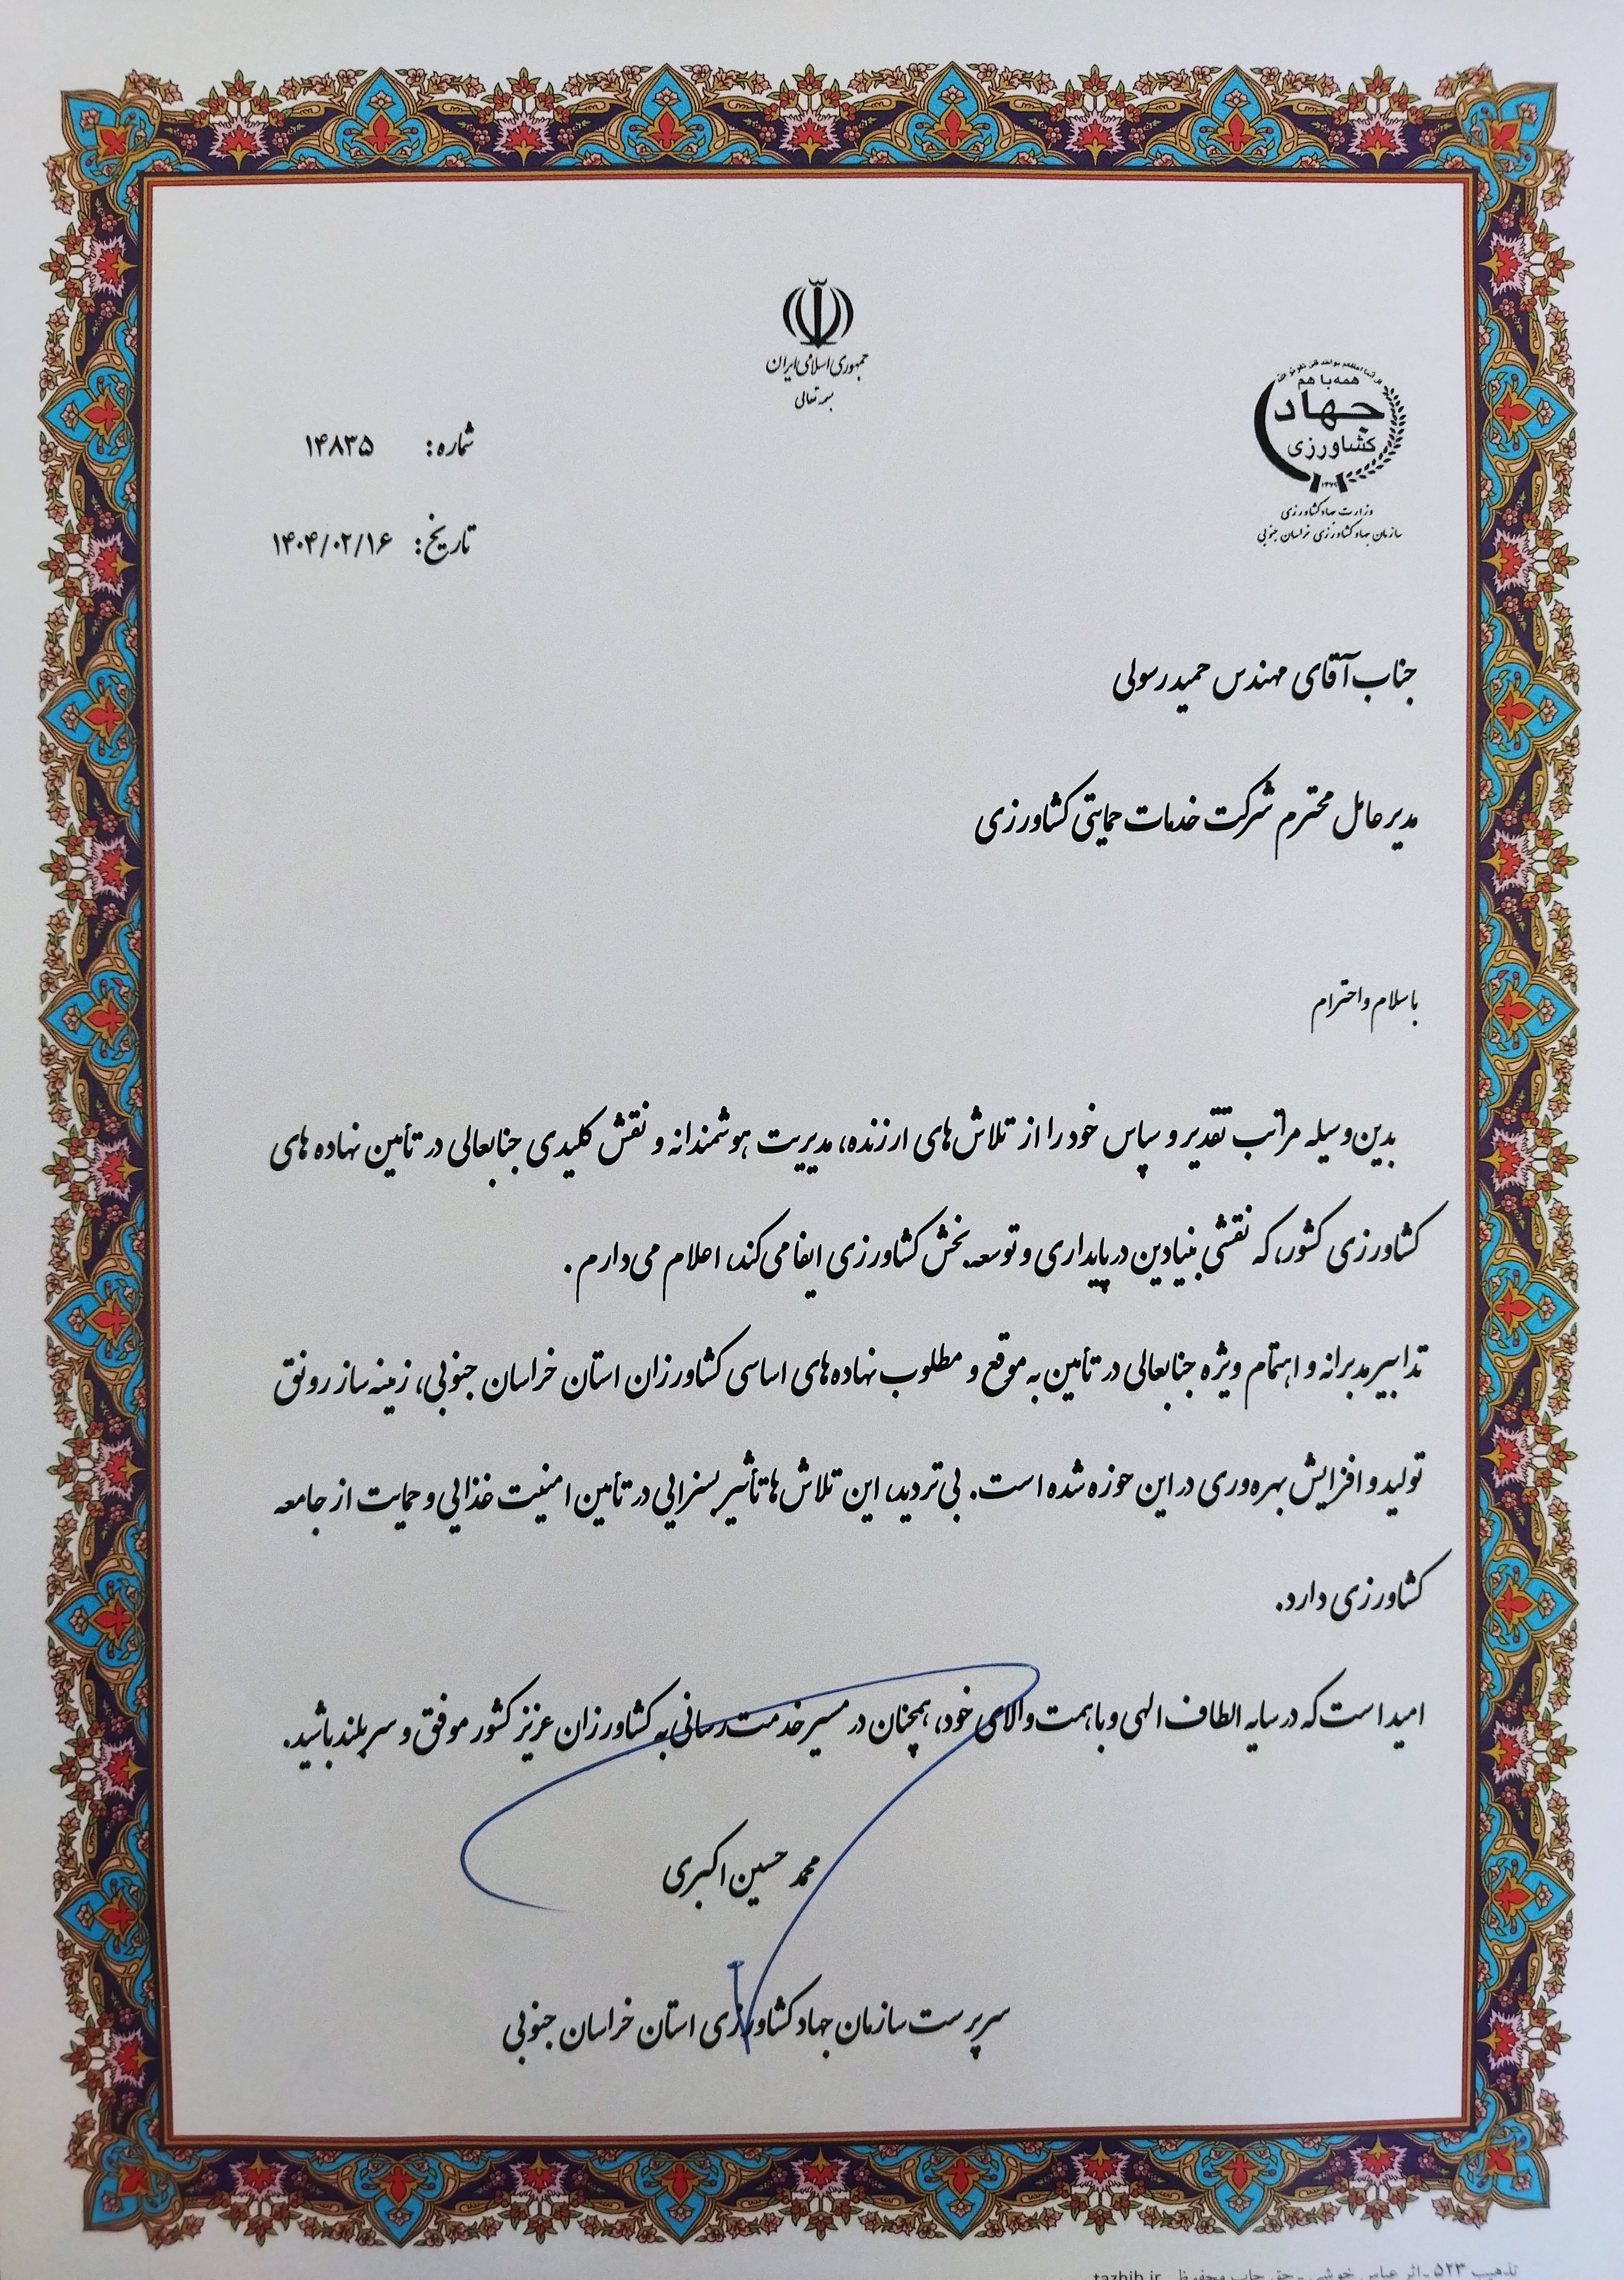 جمهوری اسلامی ایران
بسمه تعالی
همه با هم
جهاد
کشاورزی
وزارت جهاد کشاورزی
سازمان جهاد کشاورزی خراسان جنوبی
شماره: ۱۴۸۳۵
تاریخ: ۱۴۰۴/۰۲/۱۶
جناب آقای مهندس حمید رسولی
مدیرعامل محترم شرکت خدمات حمایتی کشاورزی
با سلام و احترام
بدین‌وسیله مراتب تقدیر و سپاس خود را از تلاش‌های ارزنده، مدیریت هوشمندانه و نقش کلیدی جنابعالی در تأمین نهاده های
کشاورزی کشور، که نقشی بنیادین در پایداری و توسعه بخش کشاورزی ایفا می‌کند، اعلام می‌دارم .
تدابیر مدبرانه و اهتمام ویژه جنابعالی در تأمین به موقع و مطلوب نهاده‌های اساسی کشاورزان استان خراسان جنوبی، زمینه ساز رونق
تولید و افزایش بهره‌وری در این حوزه شده است. بی‌تردید، این تلاش‌ها تأثیر بسزایی در تأمین امنیت غذایی و حمایت از جامعه
کشاورزی دارد.
امید است که در سایه الطاف الهی و با همت والای خود، همچنان در مسیر خدمت‌رسانی به کشاورزان عزیز کشور موفق و سربلند باشید.
محمد حسین اکبری
سرپرست سازمان جهاد کشاورزی استان خراسان جنوبی
تذهیب ۵۲۳ - اثر عباس خوشی - حق چاپ محفوظ tazhib.ir